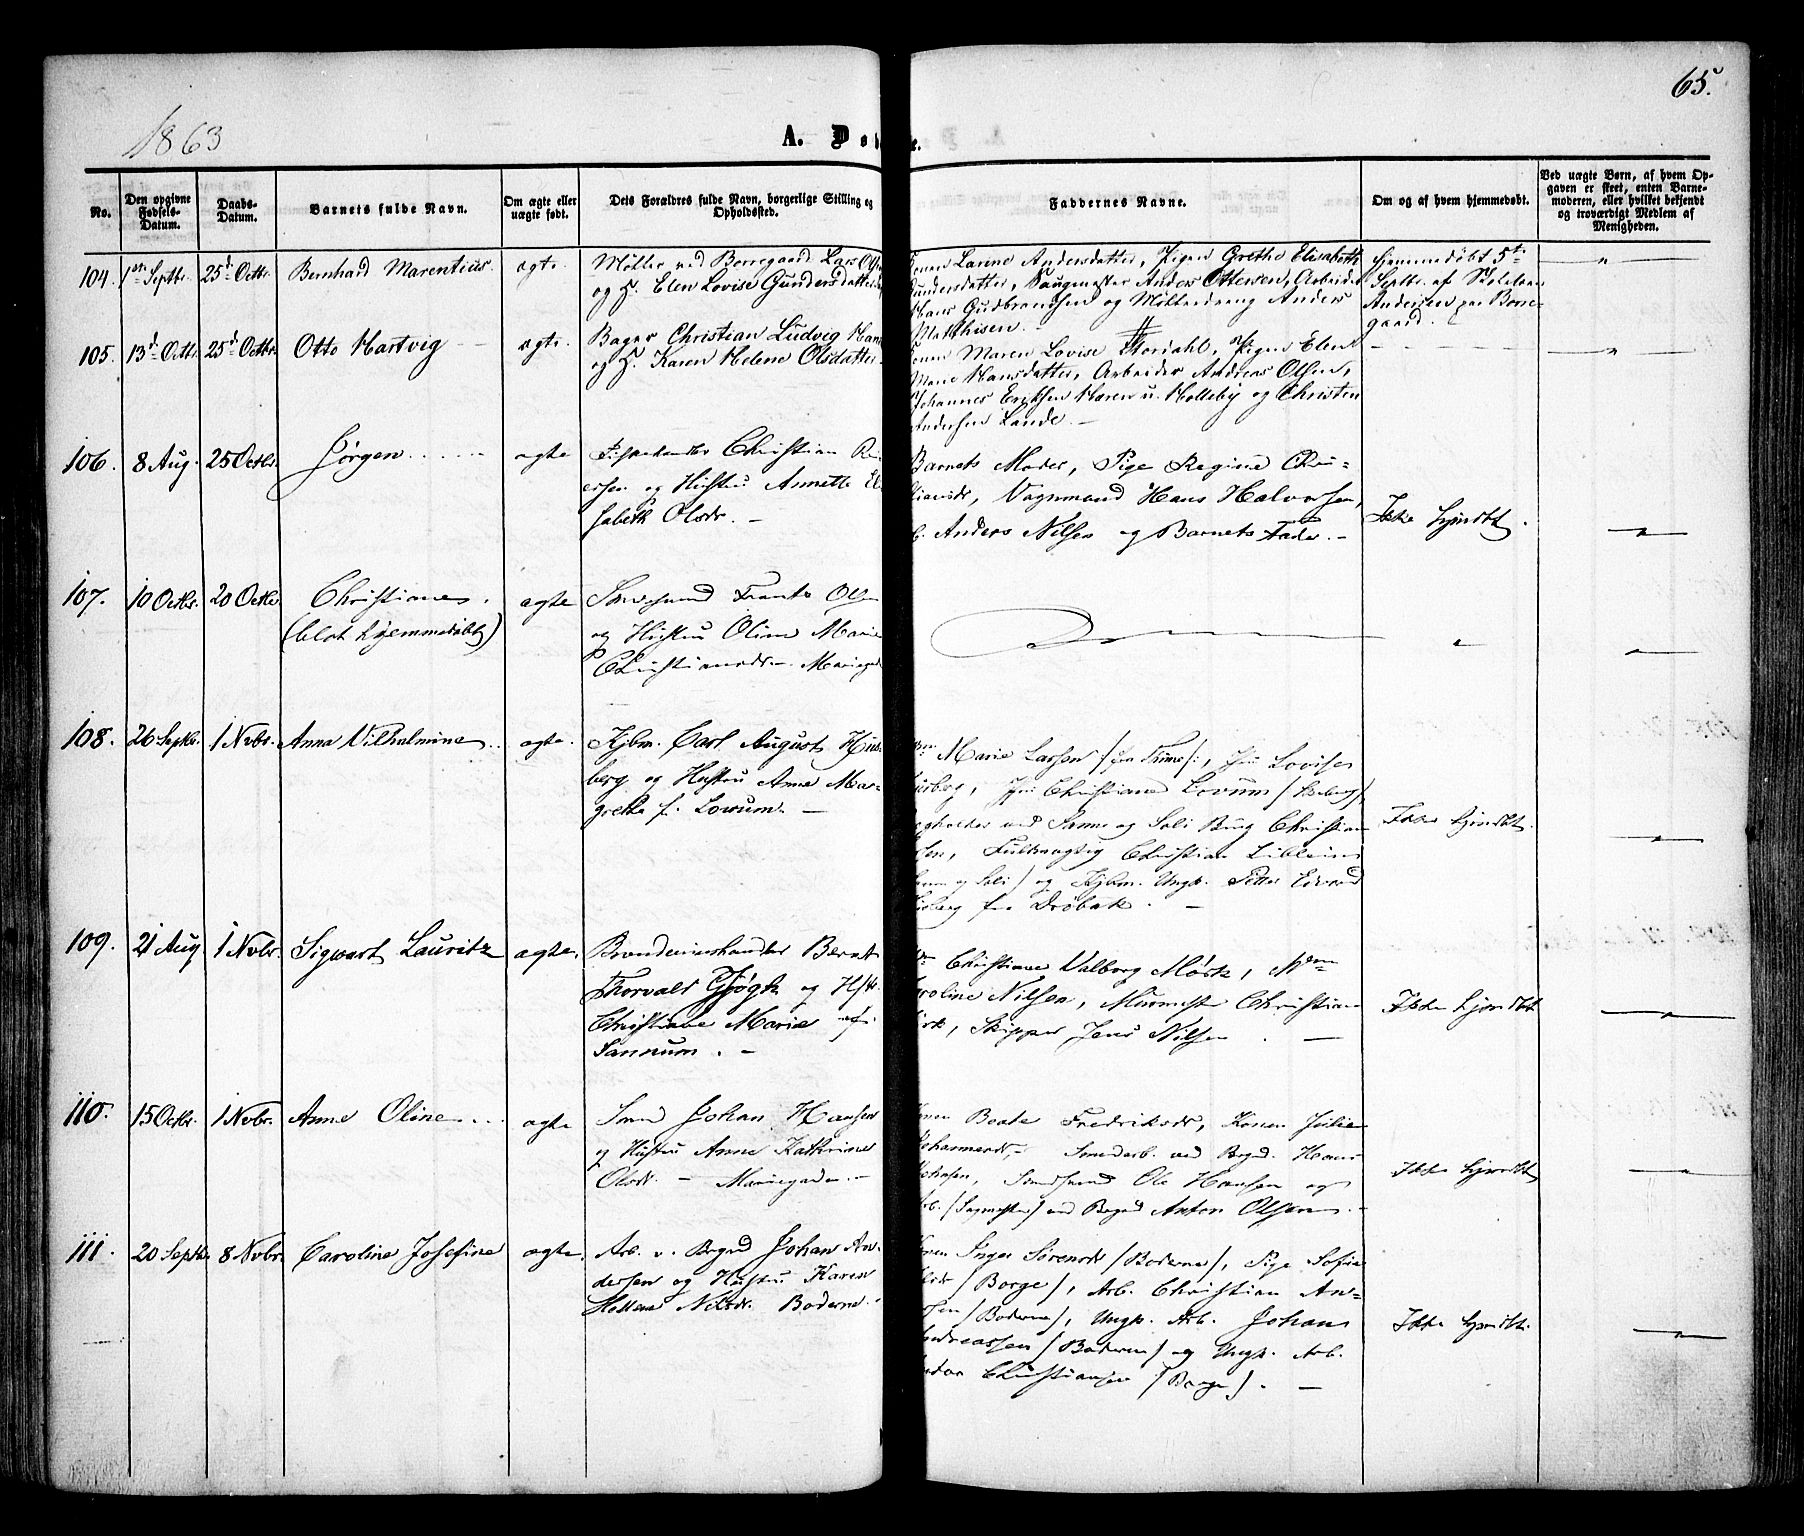 65.
1863
A. Dø e.
No.
Den opgivne Fødsels-Datum.
Daabs-Datum.
Barnets fulde Navn.
Om ægte eller uægte født.
Dets Forældres fulde Navn, borgerlige Stilling og Opholdsted.
Faddernes Navne.
Om og af hvem hjemmedøbt.
Ved uægte Børn, af hvem Opgaven er skeet, enten Barnemoderen, eller hvilket bekjendt og troværdigt Medlem af Menigheden.
104. 1ste Septbr. 25de Octbr. Bernhard Marentius. ægte.
Møller ved Borregaard Lars Ols
og H. Elen Lovise Gundersdatter
Konen Larine Andersdatter, Pigen Grethe Elisabeth
Gundersdatter, Saugmester Anders Ottersen, Arbeider
Hans Gudbrandsen og Møllerdreng Anders
Matthisen.
Hjemmedøbt 5te
Septbr. af Skolelærer
Andersen paa Borre-
gaard.
105. 13de Octbr. 25de Octbr. Otto Hartvig ægte.
Bager Christian Ludvig Han
og H. Karen Helene Olsdatter
Konen Maren Lovise Floridahl, Pigen Elen
Marie Hansdatter, Arbeider Andreas Olsen,
Johannes Eriksen Haren u. Holleby og Christen
Andersen Lande. -
106. 8 Aug. 25 Octbr. Jørgen ægte
Fiskehandler Christian
ersen og Hustru Annette El
sabeth Olsdr. -
Barnets Moder, Pige Regine Chri-
stiansdr, Vognmand Hans Halvorsen,
Anders Nilsen og Barnets Fader. -
Ikke hjmdbt.
107. 10 Octbr. 20 Octbr Christiane
(blot hjemmedøbt) ægte
Smedsvend Frants Olsen
og Hustru Oline Marie
Christiansdr. - Mariegad
108. 26 Septbr. 1 Nvbr. Anna Vilhelmine. ægte.
Kjbm. Carl August Hus
berg og Hustru Anne Mar-
grethe f. Lovum. -
Marie Larsen / fra Tune /:, Jfr. Lovise
Husberg, Jfr. Christiane Lovum /
og Soli Brug Christian
sen, Fuldmægtig Christian
og Soli / og Kjbm. Ungk. Petter Edvard
Husberg fra Drøbak. -
Ikke hjmdbt.
109. 21 Aug 1 Nvbr. Sigwart Lauritz ægte.
Brændeviinshandler Bernt
Thorvald Gjøgh og Hstr.
Christiane Marie f.
Sannum. -
Christiane Valborg Mörk, Mdm
Caroline Nilsen, Murmester Christian
Mörk, Skipper Jens Nilsen. -
Ikke hjmdbt
110. 15 Octbr. 1 Nvbr. Anne Oline ægte
Smed Johan Hansen
og Hustru Anne Kathrine
Olsdr. - Mariegaden. -
Konen Beate Fredriksdr, Konen Julie
Johannesdr, - Smedarb. ved Brgd. Hans
Johansen, Smedsvend Ole Hansen og
Arb. / Sagmester / ved Brgrd Anton Olsen. -
Ikke hjmdbt
111. 20 Septbr. 8 Nvbr. Caroline Josefine ægte
Arb. v. Brgrd Johan An-
dersen og Hustru Karen
Helene Nilsdr. Boderne. -
Konen Inger Sørensdr / Boderne /, Pige Sofie
Olsdr / Borge /, Arb. Christian An-
sen / Boderne /, Ungk. Arb. Johan
Andreassen / Boderne / og Ungk. Arb.
Christiansen / Borge /. -
Ikke hjmdbt.